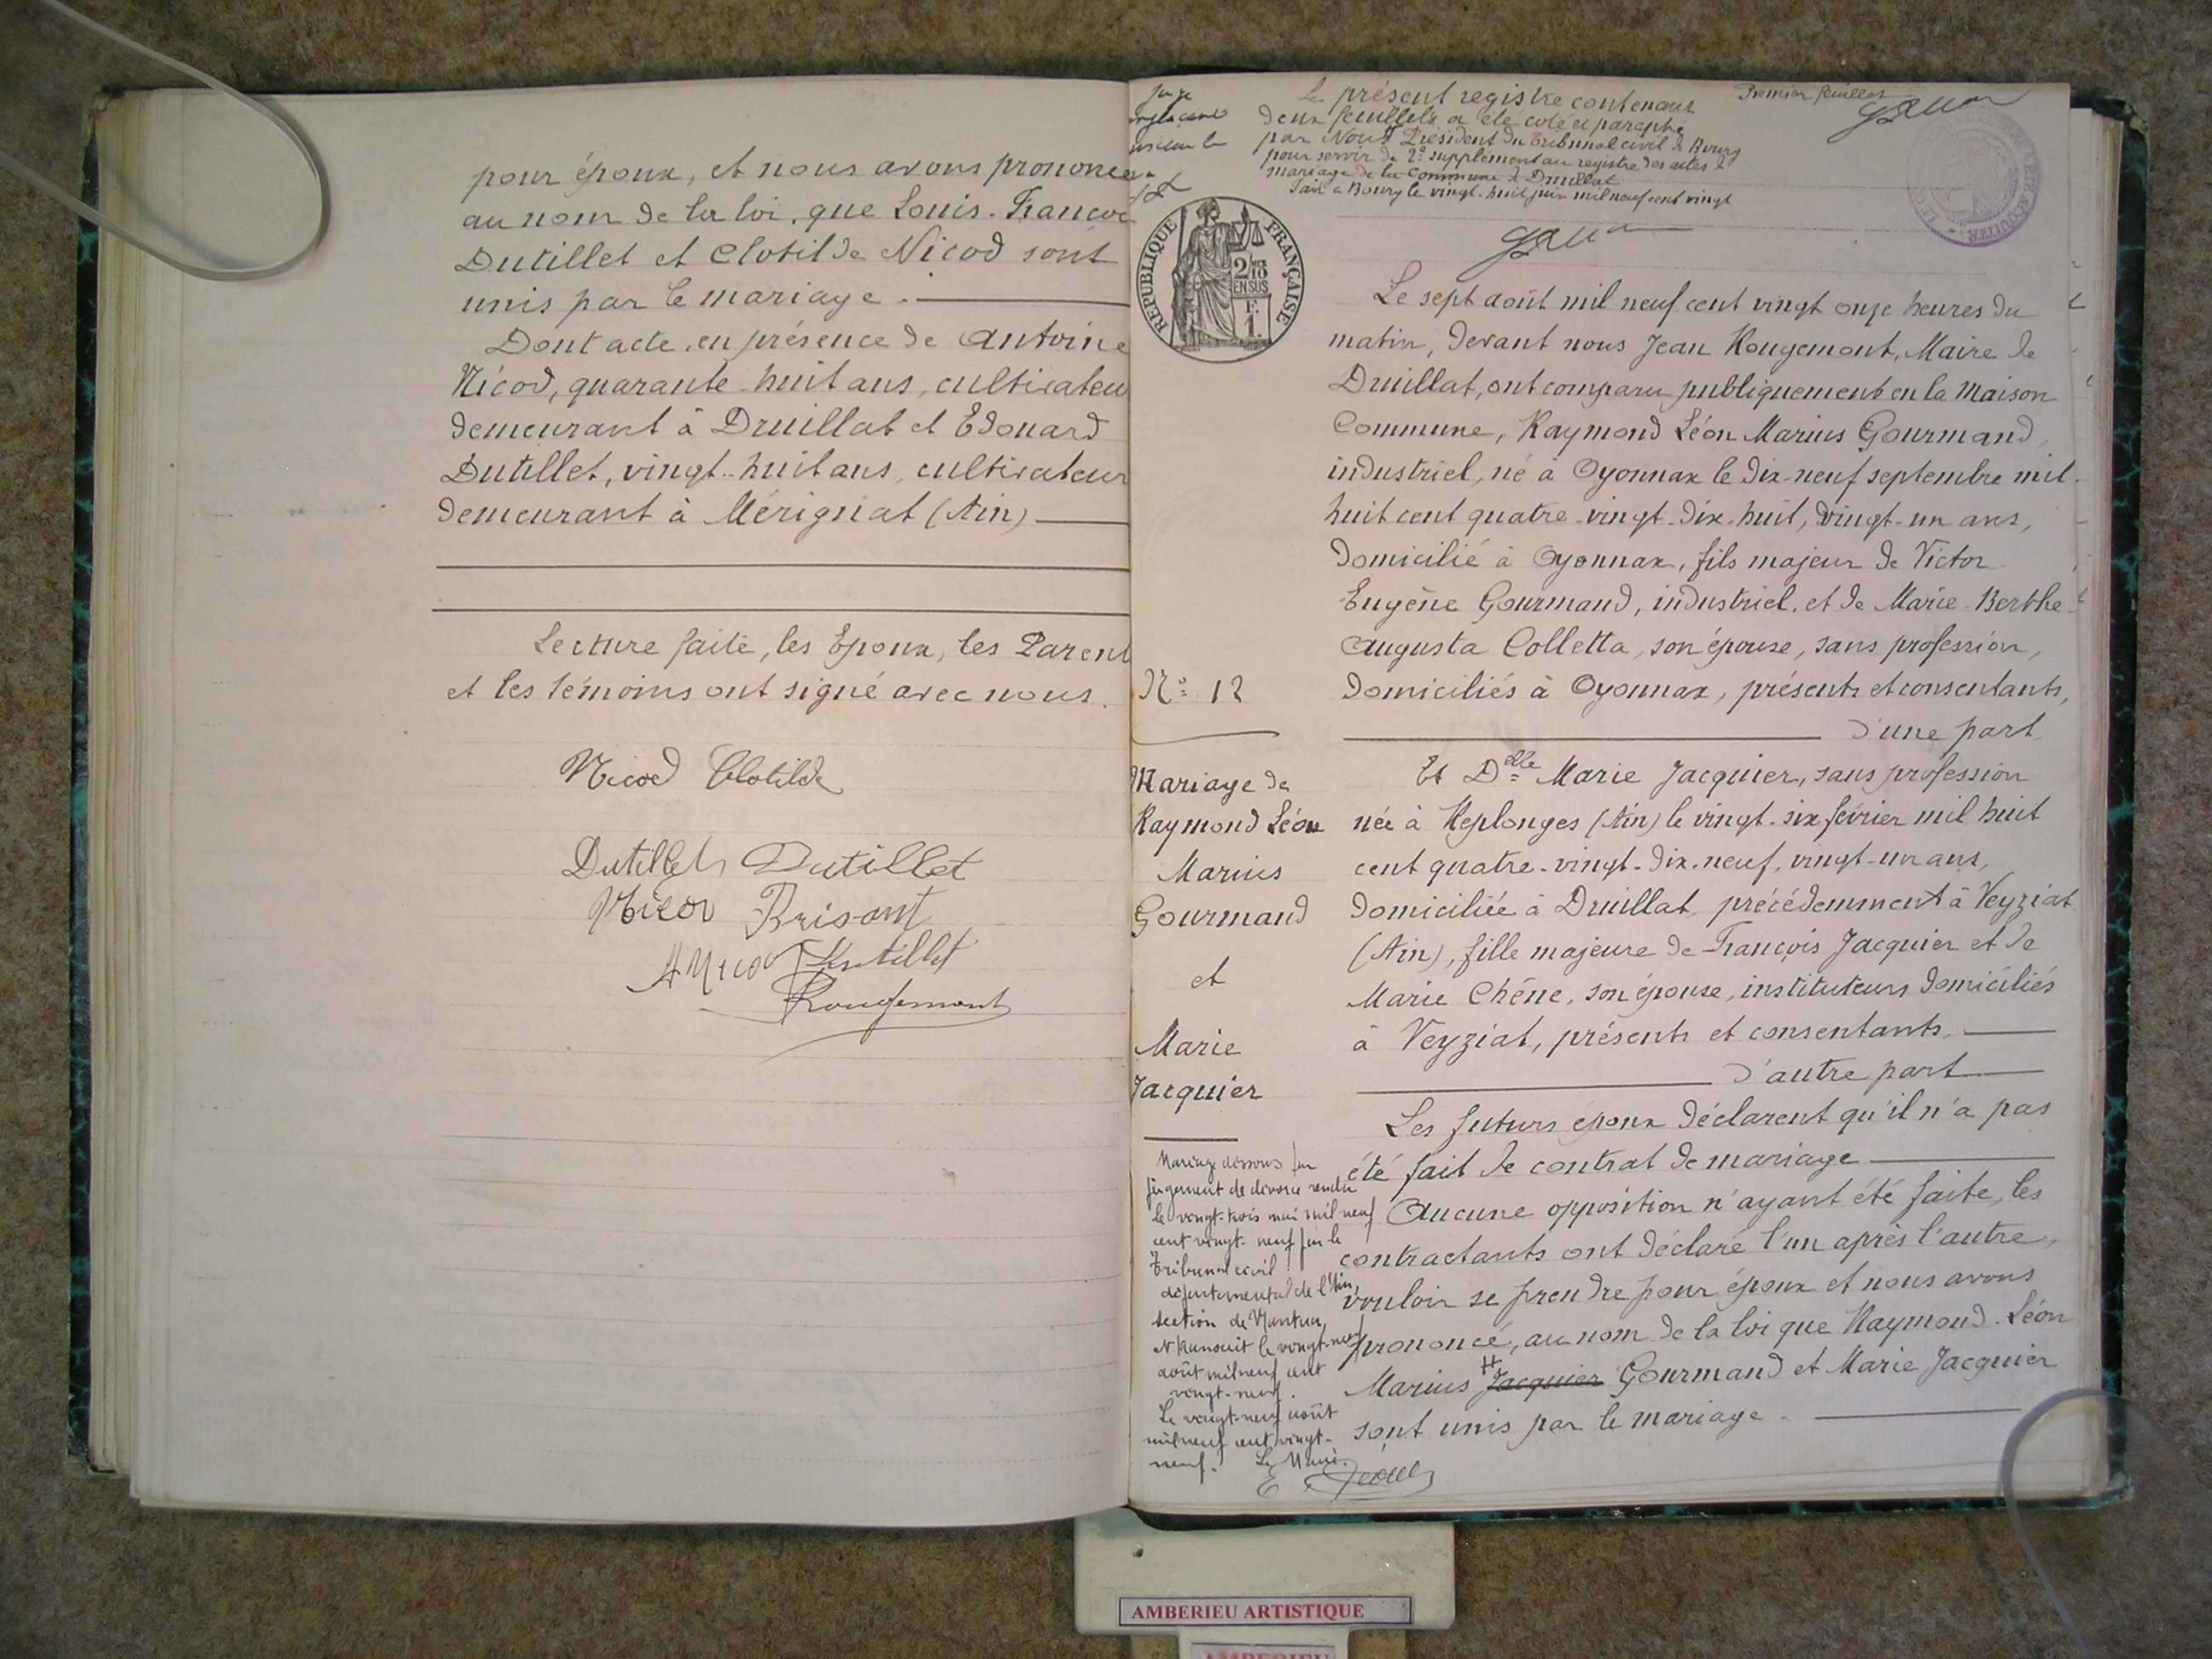 pour époux, et nous avons prononcé
au nom de la loi, que Louis-Françoi
Dutillet et Clotilde Nicod sont
unis par le mariage.
Dont acte, en présence de Antoine
Nicod, quarante huit ans, cultivateu
demeurant à Druillat et Edouard
Dutillet, vingt-huit ans, cultivateur
demeurant à Mérignat (Ain)
Lecture faite, les Epoux, les Parent
et les témoins ont signé avec nous.
Nicod Clotilde
Dutillet Dutillet
Nicod Brisant
A Nicod Dutillet
Rougemont
juge
Le présent registre contenant
deux feuillets a été coté et paraphé
par Nous Président du Tribunal civil de Bourg
pour servir de 2e supplément au registre des actes de
mariage de la Commune de Druillat
Fait à Bourg le vingt-huit juin mil neuf cent vingt
Premier feuillet
REPUBLIQUE FRANÇAISE
2/10
EN SUS
F.
1.
Le sept août mil neuf cent vingt onze heures du
matin, devant nous Jean Rougemont, Maire de
Druillat, ont comparu publiquement en la Maison
Commune, Raymond Léon Marius Gourmand,
industriel, né à Oyonnax le dix-neuf septembre mil
huit cent quatre-vingt-dix-huit, vingt-un ans,
domicilié à Oyonnax, fils majeur de Victor
Eugène Gourmand, industriel, et de Marie-Berthe
Augusta Colletta, son épouse, sans profession,
domiciliés à Oyonnax, présents et consentants,
d'une part
Et Delle Marie Jacquier, sans profession
née à Replonges (Ain) le vingt-six février mil huit
cent quatre-vingt-dix-neuf, vingt-un ans,
domiciliée à Druillat, précédemment à Veyziat
(Ain), fille majeure de François Jacquier et de
Marie Chêne, son épouse, instituteurs domiciliés
à Veyziat, présents et consentants.
d'autre part
Les futurs époux déclarent qu'il n'a pas
été fait de contrat de mariage
Aucune opposition n'ayant été faite, les
contractants ont déclaré l'un après l'autre,
vouloir se prendre pour époux et nous avons
prononcé, au nom de la loi que Raymond-Léon
Marius Jacquier Gourmand et Marie Jacquier
sont unis par le mariage.
N° 12
Mariage de
Raymond Léon
Marius
Gourmand
et
Marie
Jacquier
Mariage dissous par
jugement de divorce rendu
le vingt-trois mai mil neuf
cent vingt-neuf par le
Tribunal civil
départemental de l'Ain,
section de Nantua,
et transcrit le vingt-neuf
août mil neuf cent
vingt-neuf.
Le vingt-neuf août
mil neuf cent vingt-
neuf. Le Maire.
AMBERIEU ARTISTIQUE
AMBERIEU